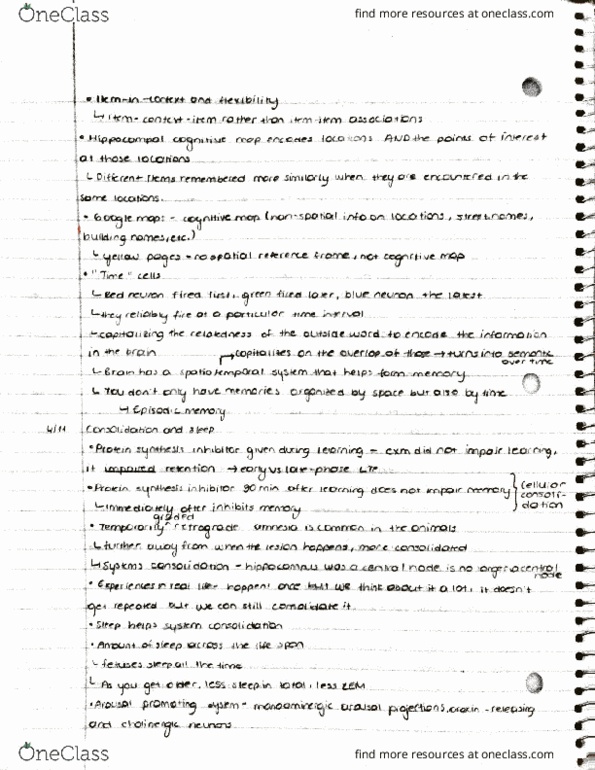 OneClass
find more resources at oneclass.com
• Item-in-context and flexibility
↳ Item-context-item rather than item-item associations
• Hippocampal cognitive map encodes locations AND the points of interest
at those locations
↳ Different items remembered more similarly when they are encountered in the
same locations.
• Google maps - cognitive map (non-spatial info on locations, street names,
building names, etc.)
↳ Yellow pages - no spatial reference frame, not cognitive map
• "Time" cells
↳ Red neuron fired first, green fired later, blue neuron the latest
↳ they reliably fire at a particular time interval
↳ capitalizing the relatedness of the outside word to encode the information
in the brain
↳ capitalizes on the overlap of those → turns into semantic
over time
↳ Brain has a spatiotemporal system that helps form memory
↳ You don't only have memories organized by space but also by time
↳ Episodic memory
4/11 Consolidation and sleep
• Protein synthesis inhibitor given during learning - cxm did not impair learning,
it impaired retention → early vs late-phase LTP
• Protein synthesis inhibitor 90 min after learning does not impair memory
↳ Immediately after inhibits memory
cellular
consoli-
dation
graded
• Temporarily ^ retrograde amnesia is common in the animals
↳ further away from when the lesion happens, more consolidated
↳ Systems consolidation - hippocampus was a central node is no longer a central
node
• Experiences in real life - happen once but we think about it a lot, it doesn't
get repeated but we can still consolidate it.
• Sleep helps system consolidation
• Amount of sleep across the life span
↳ fetuses sleep all the time
↳ As you get older, less sleep in total, less REM
• Arousal promoting system - monoaminergic arousal projections, orexin-releasing
and cholinergic neurons
OneClass
find more resources at oneclass.com